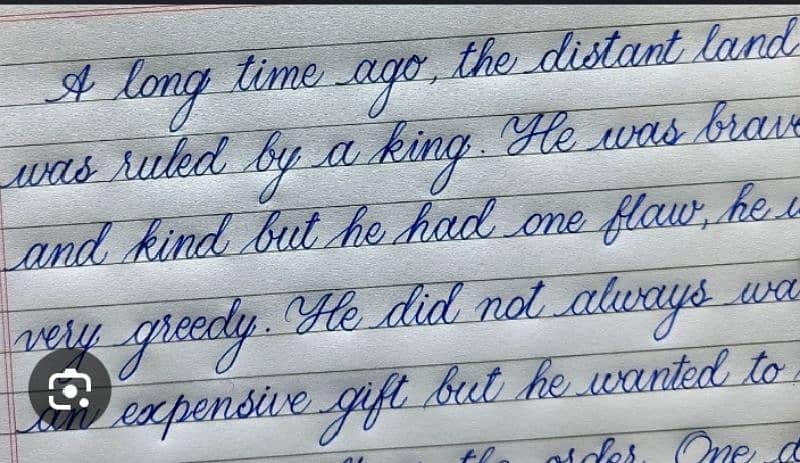 A long time ago, the distant land
was ruled by a king. He was brave
and kind but he had one flaw, he
very greedy. He did not always
an expensive gift but he wanted to
the order. One